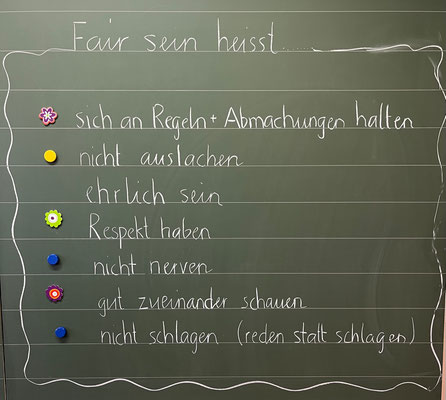 Fair sein heisst.....
sich an Regeln + Abmachungen halten
nicht auslachen
ehrlich sein
Respekt haben
nicht nerven
gut zueinander schauen
nicht schlagen (reden statt schlagen)